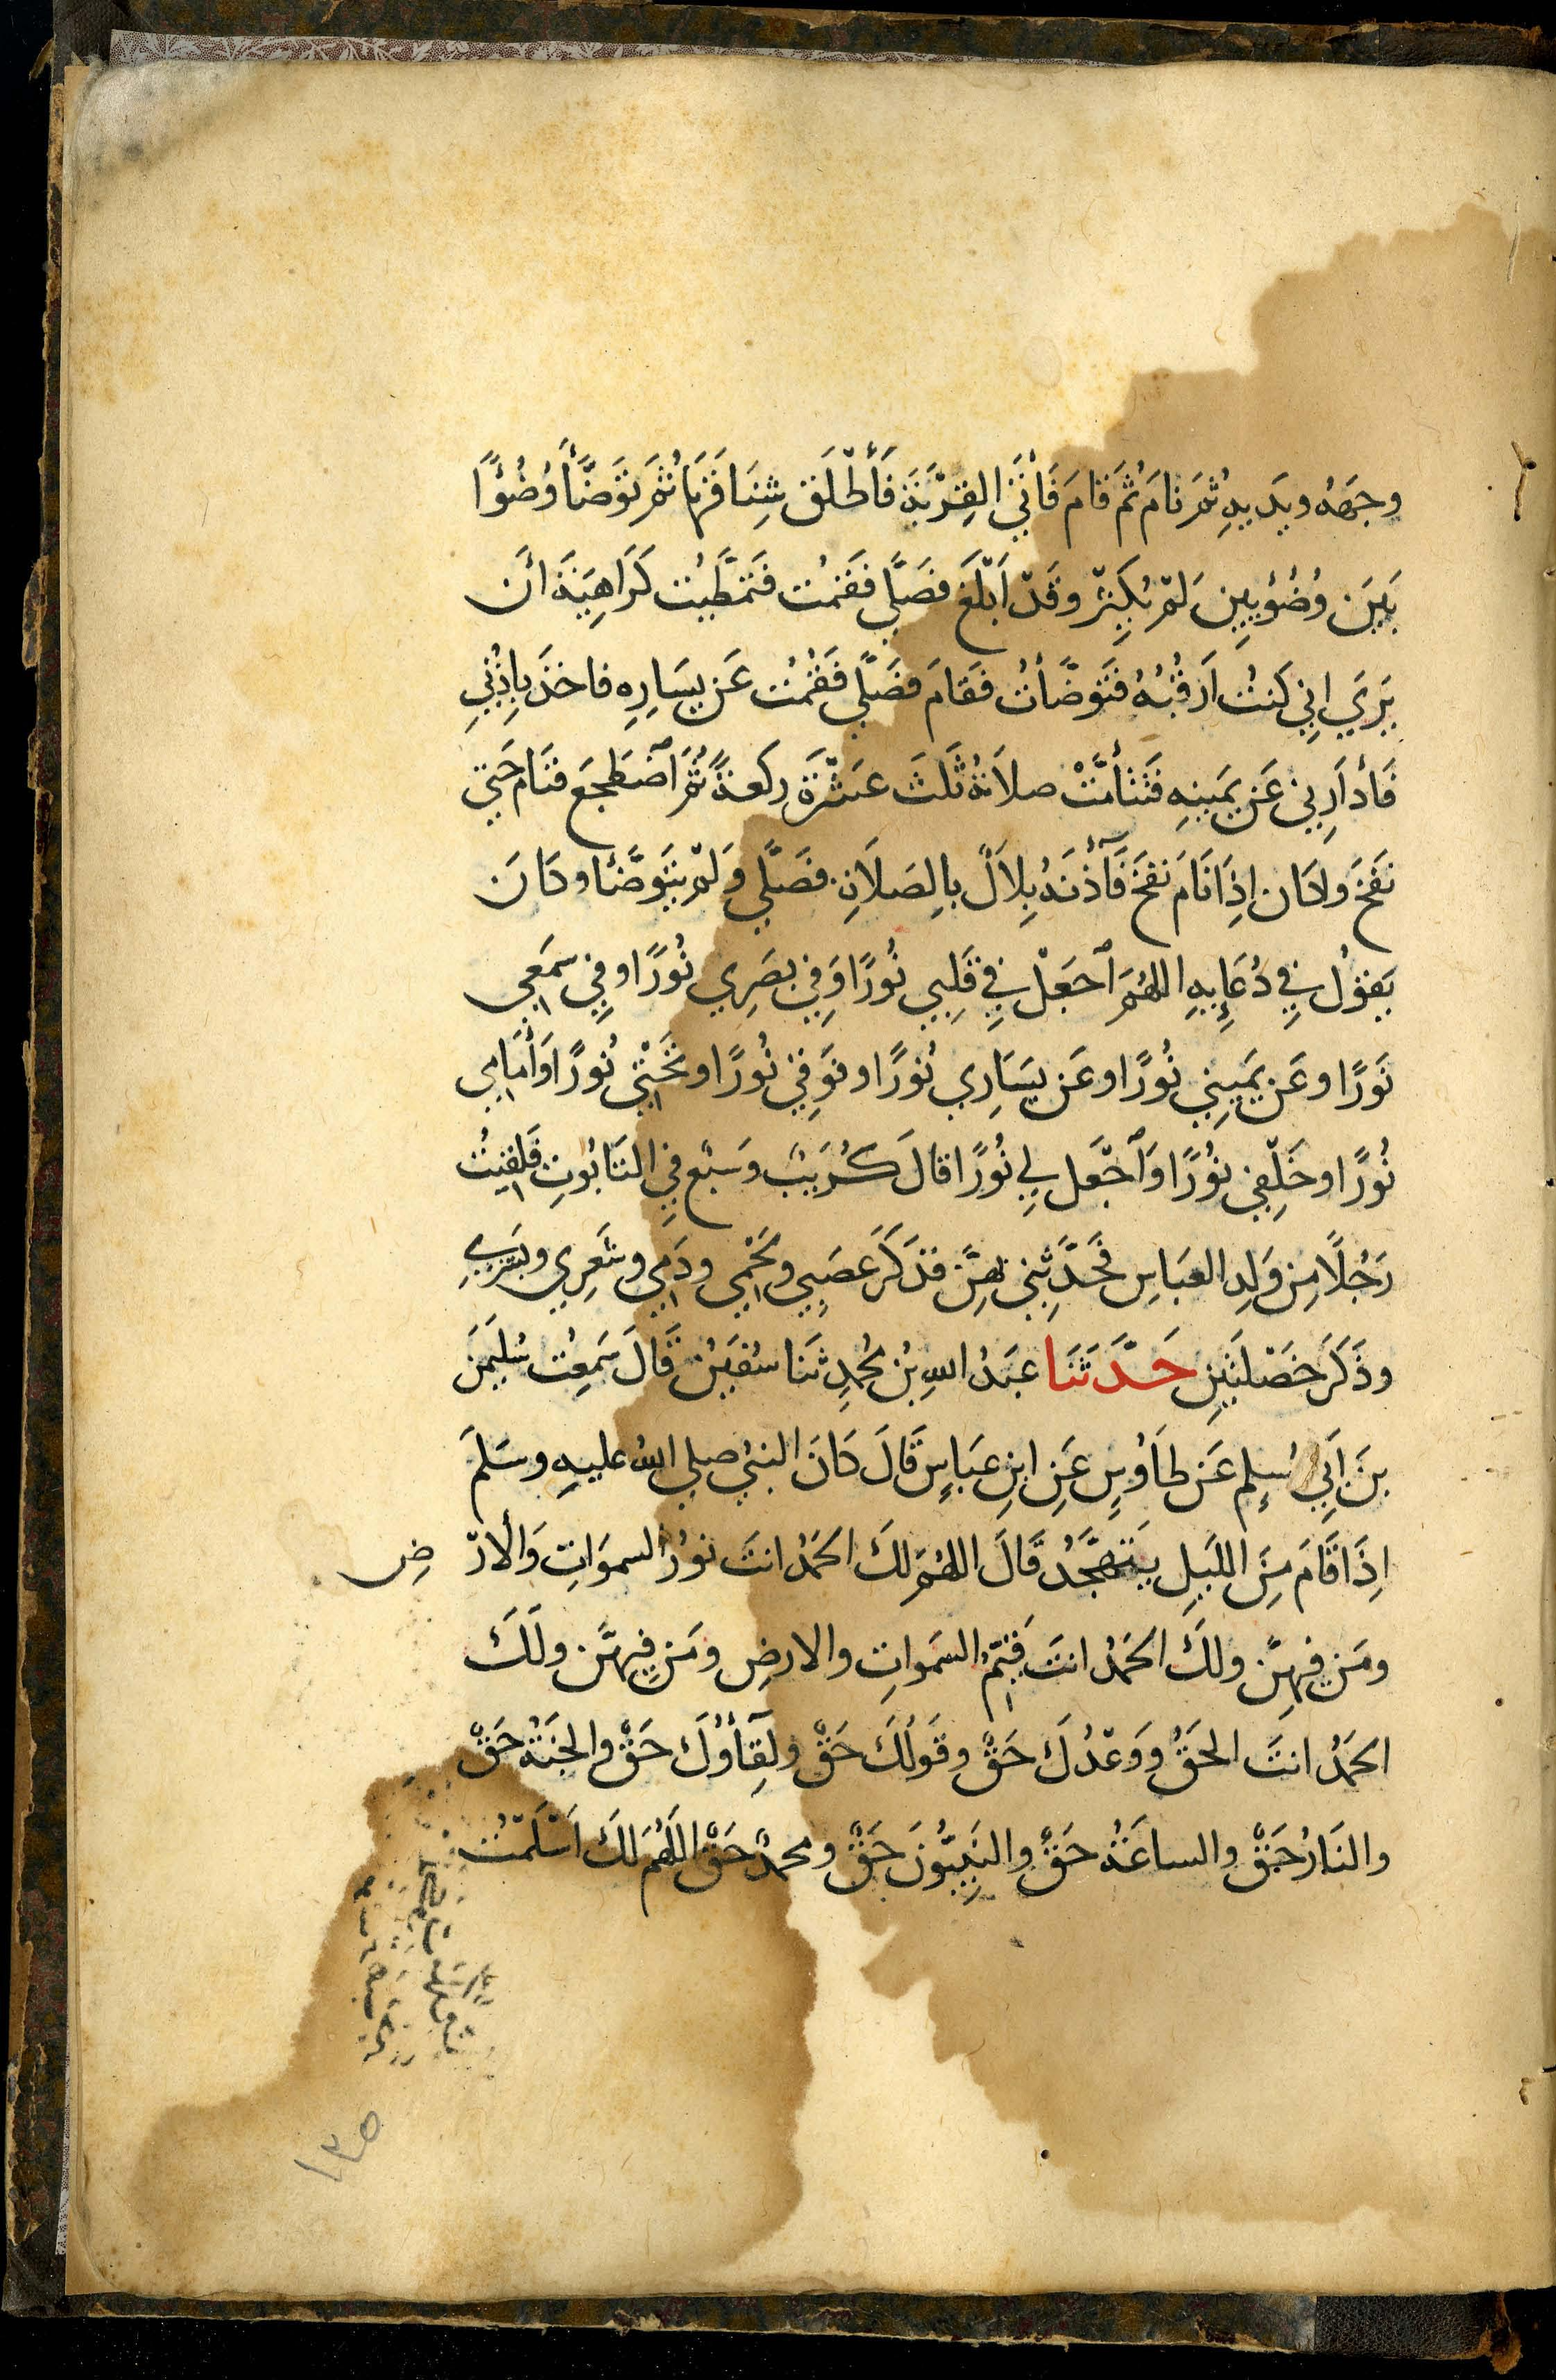 وجهَهُ ويدَيهِ ثمَّ نامَ ثُمَ قامَ فَأتَى القِرْبَةَ فَأَطْلَقَ شِنَاقَهَا ثُمَّ تَوَضَّأَ وُضُوْءًا
بَيْنَ وُضُوْيينِ لَمْ يُكثِرْ وقَدْ اَبْلَغَ فصَلَّي فقمْتُ فتَمطَّيتُ كَرَاهِيَةَ اَنْ
يَرَي اِنِي كنتُ اَرقُبُهُ فتَوَضَّأتُ فقَامَ فصَلَّي فقُمْتُ عَن يسَارِهِ فاخذَ بِاذُنِي
فَأدَارنِي عَن يمَينِهِ فتَتَأمَّتْ صلاتُهُ ثَلَثَ عشْرَةَ ركعةً ثُمَّ اَضْطَجعَ فنَامَ حَتي
نفَخَ وكان اِذَا نَامَ نفَخَ فَآذنَهُ بِلاَلٌ بالِصَلاَةِ فصَلَّي وَلمْ يتَوَضَّأ وكانَ
يَقولُ فِي دُعَايِهِ اللهُمَ اَجعَلْ فِي قَلِبي نُورًا وَفِي بصَرِي نُورًا وفِي سمَعِي
نَورًا وعَن يمَينِي نُورًا وعَن يسَارِي نُورًا وفَوقِي نُورًا وتَحْتِي نُورًا وَأمَامِي
نُورًا وخَلْفِي نُورًا وَاَجْعَل لِي نُورًا قالَ كُرَيبٌ وسَبْع فِي التَابُوتِ فَلقِيتُ
رَجُلًا مِن وَلدِ العبَاسِ فحَدَّثنِي بهِنَّ فذكَرَ عصَبِي ولحْمِي ودَمِي وشَعِري وبشَرِي
وذَكَرَ خصْلتَينِ حَدَّثَنَا عبَدُ اللهِ بنُ محُمدٍ ثنَا سُفيَنُ قَالَ سَمعِتُ سُليَمنَ
بنَ اَبِي مُسلِم عَن طَاوُسٍ عَنِ ابنِ عبَاسٍ قَالَ كانَ النبيُ صلي اللهُ عليهِ وسَلمَ
اِذَا قَامَ مِنَ الليَلِ يتَهجَّدُ قَالَ اللهُمَ لكَ الحَمدُ انتَ نورُ السموَاتِ وَالْارْ ضِ
ومَن فيهِنَّ ولكَ الحَمْدُ انتَ قَيِّمُ السَموَاتِ والارضِ ومَن فِيهنَّ ولَكَ
الحمَدُ انتَ الحَقُّ ووَعْدُكَ حَقٌّ وقَولُكَ حَقٌّ ولِقَآؤُكَ حَقٌّ والجنَةُ حَقٌّ
والنَارُ حَقٌّ والساعَةُ حَقٌّ والنَبيُّونَ حَقٌّ ومحمدٌ حَقٌّ اللَهُمَ لكَ اَسْلَمْتُ
١٣٥